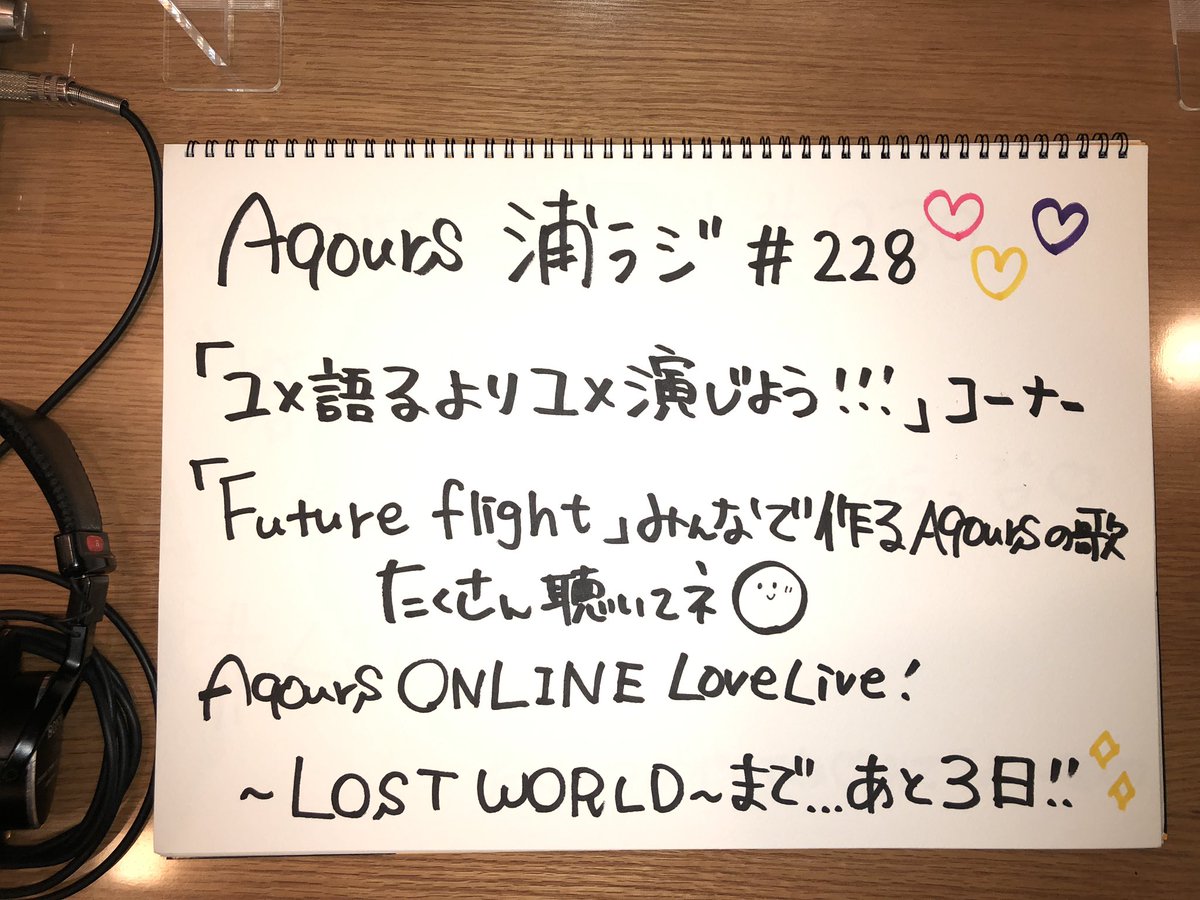 Aqours 浦ラジ #228
「ユメ語るよりユメ演じよう!!!」コーナー
「Future flight」みんなで作るAqoursの歌
たくさん聴いてネ
Aqours ONLINE LoveLive!
~LOST WORLD~まで...あと3日!!